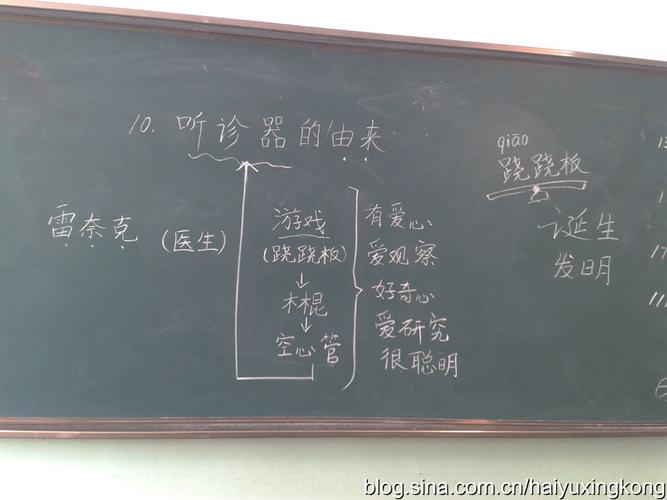 10. 听诊器的由来
雷奈克 (医生)
游戏
(跷跷板)
木棍
空心管
有爱心
爱观察
好奇心
爱研究
很聪明
qiāo
跷跷板
诞生
发明
blog.sina.com.cn/haiyuxingkong